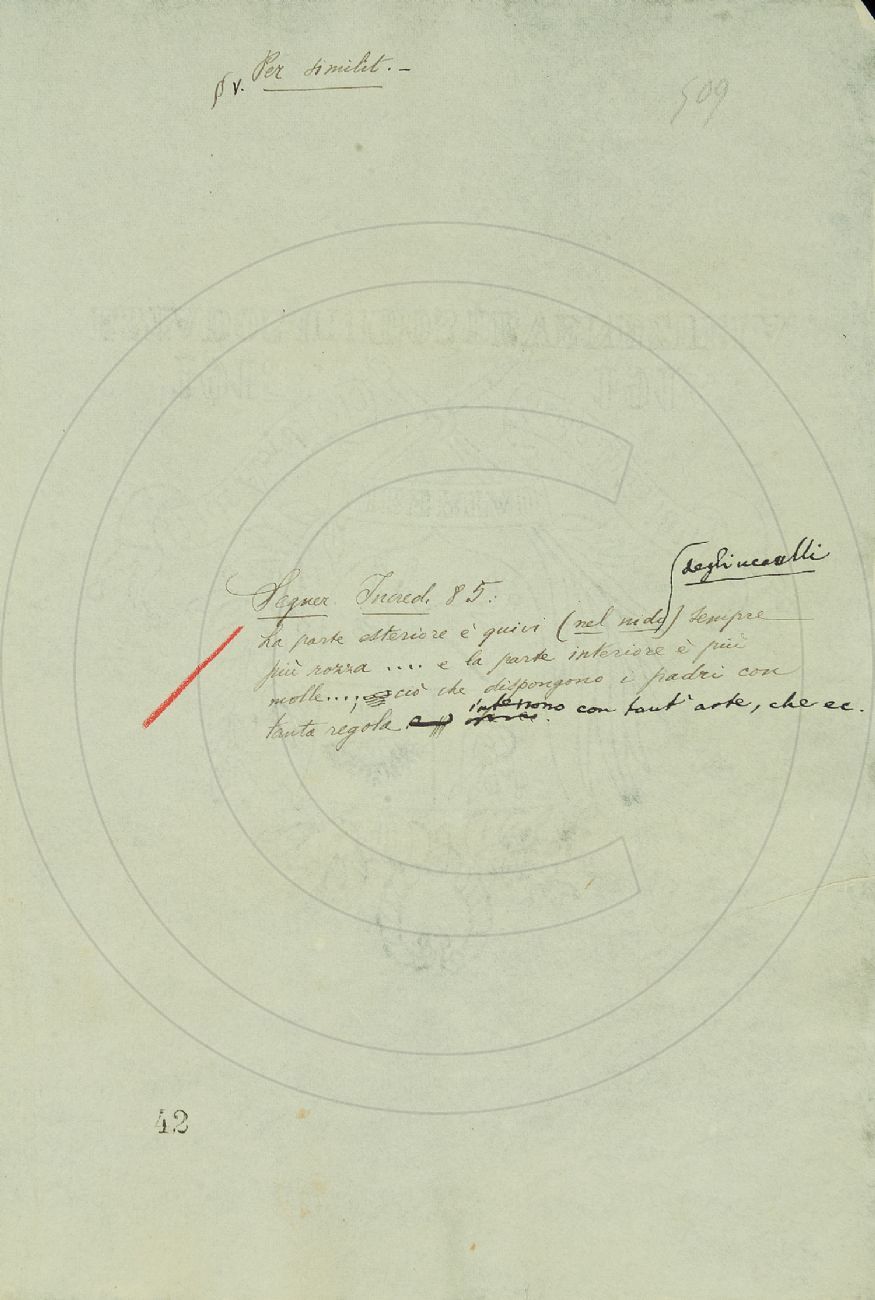 § v. Per similit. -
509
degli uccelli
Segner. Incred. 85:
La parte esteriore è quivi (nel nido) sempre
più rozza .... e la parte interiore è più
molle...; ciò che dispongono i padri con
tanta regola, e con tant'arte, che ec.
42